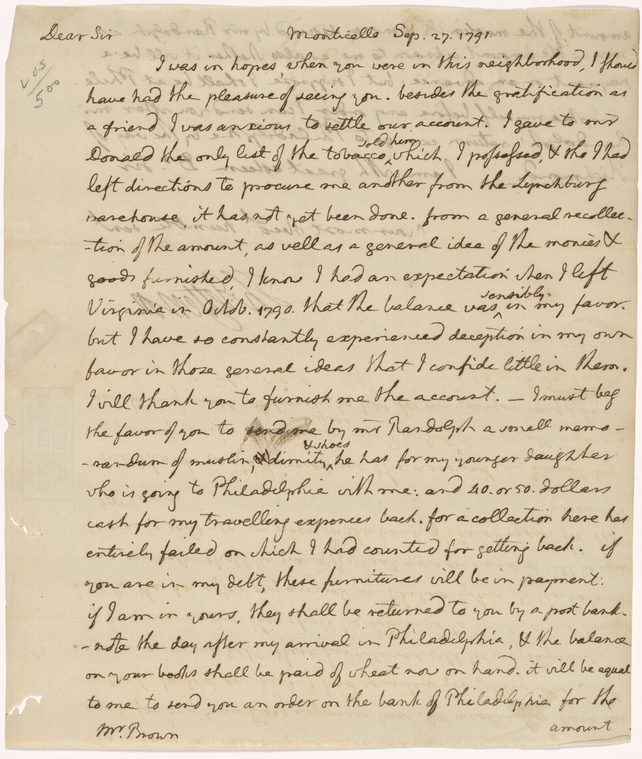 Dear Sir Monticello Sep. 27. 1791
I was in hopes, when you were in this neighborhood, I should
have had the pleasure of seeing you. besides the gratification as
a friend I was anxious to settle our account. I gave to mr
sold him
Donald the only list of the tobacco, which I possessed, & tho I had
left directions to procure me another from the Lynchburg
warehouse, it has not yet been done. from a general recollec-
-tion of the amount, as well as a general idea of the monies &
goods furnished, I know I had an expectation when I left
sensibly
Virginia in Octob. 1790. that the balance was in my favor.
but I have so constantly experienced deception in my own
favor in those general ideas that I confide little in them.
I will thank you to furnish me the account. — I must beg
the favor of you to send me by mr Randolph a small memo-
& shoes
-randum of muslin & dimity, he has for my younger daughter
who is going to Philadelphia with me: and 40. or 50. dollars
cash for my travelling expences back. for a collection here has
entirely failed on which I had counted for getting back. if
you are in my debt, these furnitures will be in paiment:
if I am in yours, they shall be returned to you by a post bank-
-note the day after my arrival in Philadelphia, & the balance
on your books shall be paid of wheat now on hand. it will be equal
to me to send you an order on the bank of Philadelphia for the
Mr. Brown amount